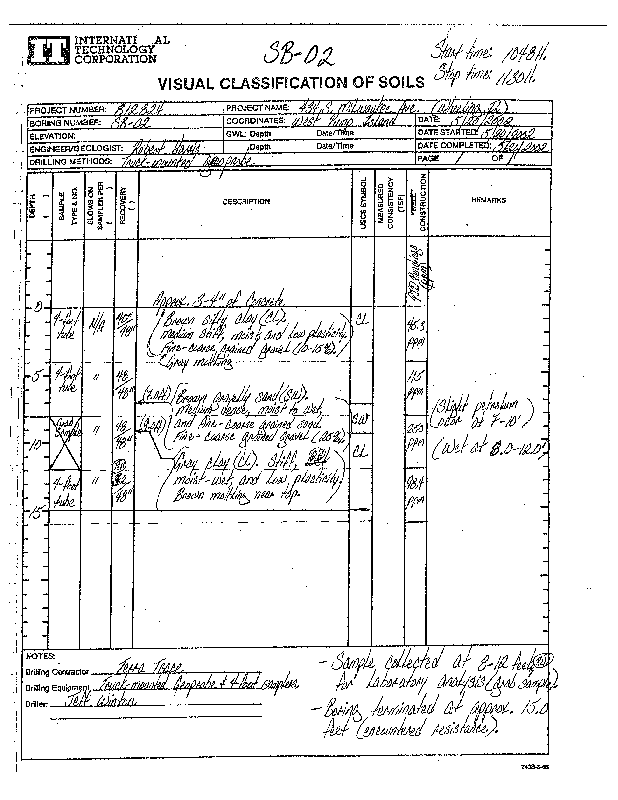 INTERNATI AL
TECHNOLOGY
CORPORATION
SB-02
Start time: 1048H.
Stop time: 1130H.
VISUAL CLASSIFICATION OF SOILS
PROJECT NUMBER: PROJECT NAME: S. Milwaukee Ave. (Wheeling, IL)
BORING NUMBER: SB-02 COORDINATES: West Pump Island DATE:
ELEVATION: GWL: Depth Date/Time DATE STARTED:
ENGINEER/GEOLOGIST: Robert Depth Date/Time DATE COMPLETED:
DRILLING METHODS: Truck-mounted Geoprobe PAGE 1 OF 1
DEPTH SAMPLE TYPE & NO. BLOWS ON SAMPLER PER ( ) RECOVERY ( ) DESCRIPTION USCS SYMBOL MEASURED CONSISTENCY (TSF) CONSTRUCTION REMARKS
0 Approx. 3-4" of Concrete.
4-foot tube N/A 48" Brown silty clay (CL). CL
medium stiff, moist and low plasticity.
Fine-coarse grained gravel (10-15%). PPM
Gray mottling
5 4-foot tube " 48 48" PPM
Brown gravelly sand (SW).
medium dense, moist to wet,
and fine-coarse grained sand. SW
Fine-coarse grained gravel (25%).
(Slight petroleum
odor at 7-10')
10 " 48 48" PPM (Wet at 8.0-12.0')
Gray clay (CL). Stiff, CL
moist-wet, and low plasticity.
Brown mottling near top.
4-foot tube " 48" PPM
15
NOTES:
Drilling Contractor Terra Trace
Drilling Equipment Truck-mounted Geoprobe & 4-foot samplers
Driller: Jeff
- Sample collected at 8-12 feet
for laboratory analysis (grab sample).
- Boring terminated at approx. 15.0
feet (encountered resistance).